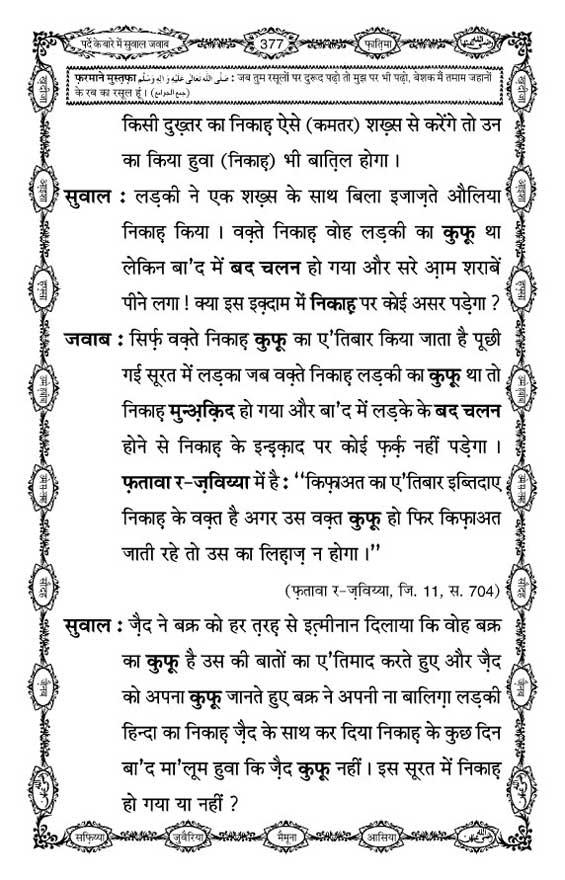 पर्दे के बारे में सुवाल जवाब
377
फ़ातिमा
फ़रमाने मुस्तफ़ा صَلَّى اللهُ تَعَالٰى عَلَيْهِ وَاٰلِهٖ وَسَلَّم : जब तुम रसूलों पर दुरूद पढ़ो तो मुझ पर भी पढ़ो, बेशक मैं तमाम जहानों
के रब का रसूल हूं । (جمع الجوامع)
किसी दुख़्तर का निकाह़ ऐसे (कमतर) शख़्स से करेंगे तो उन
का किया हुवा (निकाह़) भी बात़िल होगा ।
सुवाल : लड़की ने एक शख़्स के साथ बिला इजाज़ते औलिया
निकाह़ किया । वक़्ते निकाह़ वोह लड़की का कुफ़ू था
लेकिन बा'द में बद चलन हो गया और सरे आ़म शराबें
पीने लगा ! क्या इस इक़्दाम में निकाह़ पर कोई असर पड़ेगा ?
जवाब : सिर्फ़ वक़्ते निकाह़ कुफ़ू का ए'तिबार किया जाता है पूछी
गई सूरत में लड़का जब वक़्ते निकाह़ लड़की का कुफ़ू था तो
निकाह़ मुन्अ़क़िद हो गया और बा'द में लड़के के बद चलन
होने से निकाह़ के इन्इ़क़ाद पर कोई फ़र्क़ नहीं पड़ेगा ।
फ़तावा र-ज़विय्या में है : ‘‘किफ़ाअत का ए'तिबार इब्तिदाए
निकाह़ के वक़्त है अगर उस वक़्त कुफ़ू हो फिर किफ़ाअत
जाती रहे तो उस का लिह़ाज़ न होगा ।’’
(फ़तावा र-ज़विय्या, जि. 11, स. 704)
सुवाल : ज़ैद ने बक्र को हर त़रह़ से इत़्मीनान दिलाया कि वोह बक्र
का कुफ़ू है उस की बातों का ए'तिमाद करते हुए और ज़ैद
को अपना कुफ़ू जानते हुए बक्र ने अपनी ना बालिग़ा लड़की
हिन्दा का निकाह़ ज़ैद के साथ कर दिया निकाह़ के कुछ दिन
बा'द मा'लूम हुवा कि ज़ैद कुफ़ू नहीं । इस सूरत में निकाह़
हो गया या नहीं ?
सफ़िय्या
जुवैरिया
मैमूना
आसिया